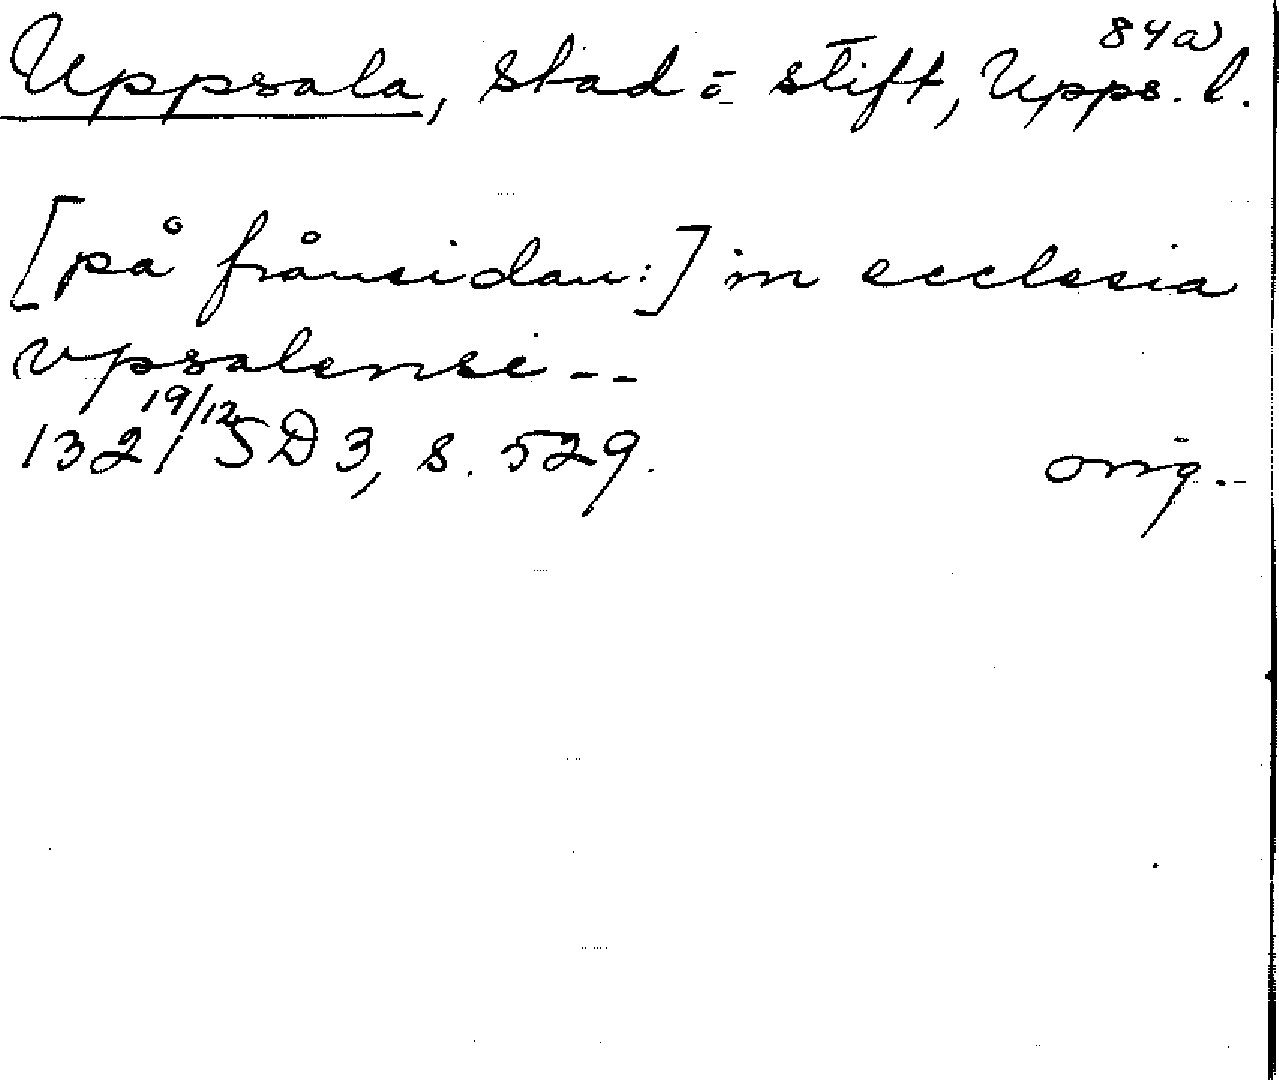 84a
Uppsala, stad o. stift, Upps. l.
[på frånsidan:] in ecclesia
vpsalensi--
132 19/12 SD 3, s. 529.
orig.